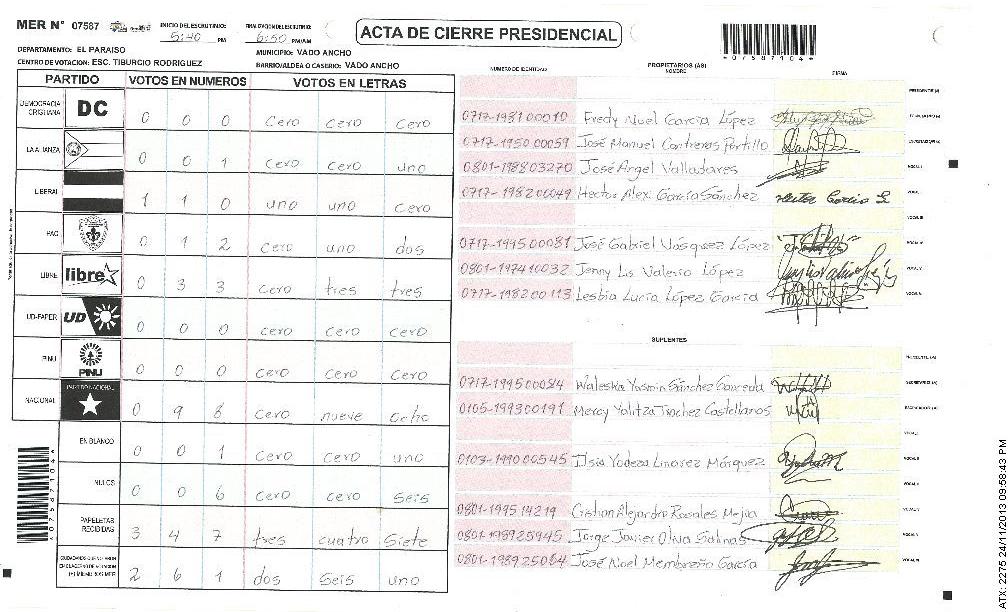 MER N° 07587
INICIO DEL ESCRUTINIO:
5:40 PM
FINALIZACION DEL ESCRUTINIO:
6:50 PM/AM
ACTA DE CIERRE PRESIDENCIAL
*07587104*
DEPARTAMENTO: EL PARAISO
MUNICIPIO: VADO ANCHO
CENTRO DE VOTACION: ESC. TIBURCIO RODRIGUEZ
BARRIO/ALDEA O CASERIO: VADO ANCHO
PARTIDO VOTOS EN NUMEROS VOTOS EN LETRAS
DEMOCRACIA CRISTIANA DC 0 0 0 cero cero cero
LA ALIANZA 0 0 1 cero cero uno
LIBERAL 1 1 0 uno uno cero
PAC 0 1 2 cero uno dos
LIBRE libre 0 3 3 cero tres tres
UD-FAPER UD 0 0 0 cero cero cero
PINU PINU 0 0 0 cero cero cero
NACIONAL PARTIDO NACIONAL 0 9 8 cero nueve ocho
EN BLANCO 0 0 1 cero cero uno
NULOS 0 0 6 cero cero seis
PAPELETAS RECIBIDAS 3 4 7 tres cuatro siete
2 6 1 dos seis uno
*07587104*
NUMERO DE IDENTIDAD
PROPIETARIOS (AS)
NOMBRE
FIRMA
PRESIDENTE (A)
0717-198100010 Fredy Nuel García López SECRETARIO (A)
0717-1950 00059 José Manuel Contreras Portillo ESCRUTADOR (A)
0801-198803270 José Angel Valladares VOCAL I
0717-198200049 Hector Alex. García Sánchez
0717-199500081 José Gabriel Vásquez López
0801-197410032 Jenny Lis Valerio López
0717-198200113 Lesbia Lucía López García
SUPLENTES
PRESIDENTE (A)
0717-1995000 Waleska Yasmin Sánchez SECRETARIO (A)
0105-199300191 Mercy Yalitza Castellanos ESCRUTADOR (A)
0103-199000545 Ilsia Yadeza Linarez Márquez
0801-1995 14219 Cistian Alejandro Rosales Mejia
0801-1989 25945 Jorge Javier Oliva Salinas
0801-1989 25064 José Noel Membreño García
ATX: 2275 24/11/2013 09:58:43 PM